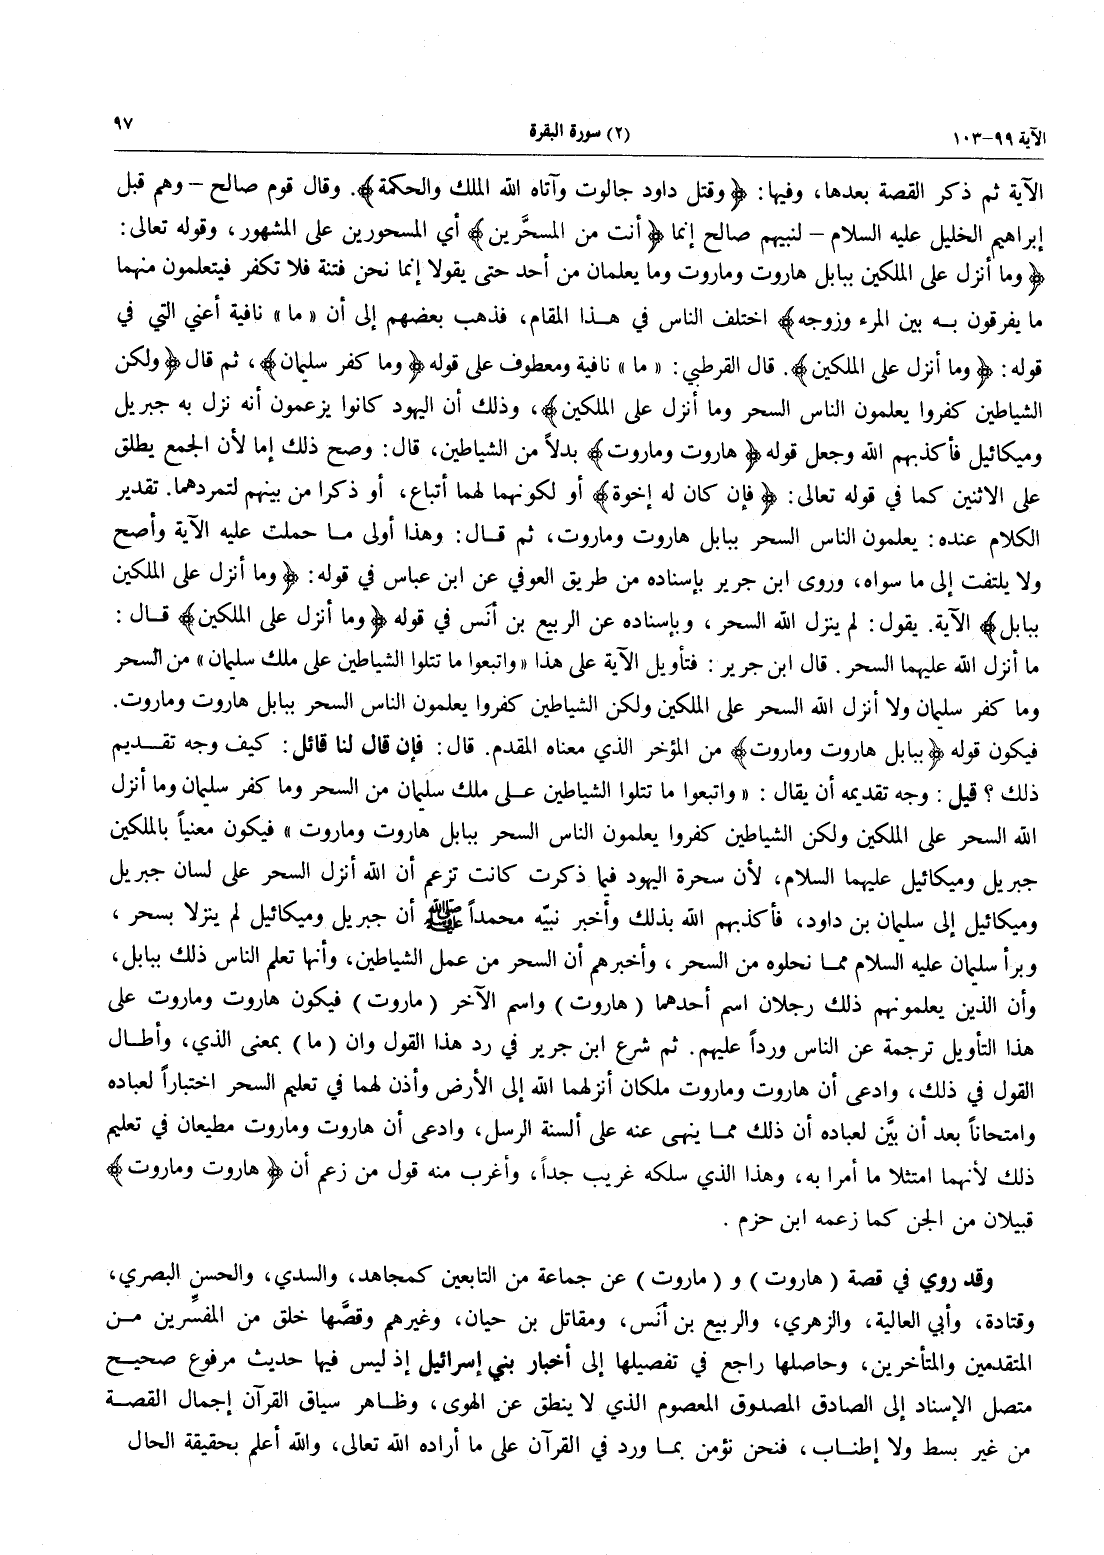 الآية ٩٩-١٠٣ (٢) سورة البقرة ٩٧
الآية ثم ذكر القصة بعدها، وفيها: ﴿وقتل داود جالوت وآتاه الله الملك والحكمة﴾. وقال قوم صالح -وهم قبل
إبراهيم الخليل عليه السلام - لنبيهم صالح إنما ﴿أنت من المسحَّرين﴾ أي المسحورين على المشهور، وقوله تعالى:
﴿وما أنزل على الملكين ببابل هاروت وماروت وما يعلمان من أحد حتى يقولا إنما نحن فتنة فلا تكفر فيتعلمون منهما
ما يفرقون به بين المرء وزوجه﴾ اختلف الناس في هذا المقام، فذهب بعضهم إلى أن «ما» نافية أعني التي في
قوله: ﴿وما أنزل على الملكين﴾. قال القرطبي: «ما» نافية ومعطوف على قوله ﴿وما كفر سليمان﴾، ثم قال ﴿ولكن
الشياطين كفروا يعلمون الناس السحر وما أنزل على الملكين﴾، وذلك أن اليهود كانوا يزعمون أنه نزل به جبريل
وميكائيل فأكذبهم الله وجعل قوله ﴿هاروت وماروت﴾ بدلاً من الشياطين، قال: وصح ذلك إما لأن الجمع يطلق
على الاثنين كما في قوله تعالى: ﴿فإن كان له إخوة﴾ أو لكونهما لهما أتباع، أو ذكرا من بينهم لتمردهما. تقدير
الكلام عنده: يعلمون الناس السحر ببابل هاروت وماروت، ثم قال: وهذا أولى ما حملت عليه الآية وأصح
ولا يلتفت إلى ما سواه، وروى ابن جرير بإسناده من طريق العوفي عن ابن عباس في قوله: ﴿وما أنزل على الملكين
ببابل﴾ الآية. يقول: لم ينزل الله السحر، وبإسناده عن الربيع بن أنَس في قوله ﴿وما أنزل على الملكين﴾ قال:
ما أنزل الله عليهما السحر. قال ابن جرير: فتأويل الآية على هذا «واتبعوا ما تتلوا الشياطين على ملك سليمان» من السحر
وما كفر سليمان ولا أنزل الله السحر على الملكين ولكن الشياطين كفروا يعلمون الناس السحر ببابل هاروت وماروت.
فيكون قوله ﴿ببابل هاروت وماروت﴾ من المؤخر الذي معناه المقدم. قال: فإن قال لنا قائل: كيف وجه تقديم
ذلك؟ قيل: وجه تقديمه أن يقال: «واتبعوا ما تتلوا الشياطين على ملك سليمان من السحر وما كفر سليمان وما أنزل
الله السحر على الملكين ولكن الشياطين كفروا يعلمون الناس السحر ببابل هاروت وماروت» فيكون معنياً بالملكين
جبريل وميكائيل عليهما السلام، لأن سحرة اليهود فيما ذكرت كانت تزعم أن الله أنزل السحر على لسان جبريل
وميكائيل إلى سليمان بن داود، فأكذبهم الله بذلك وأخبر نبيّه محمداً ﷺ أن جبريل وميكائيل لم ينزلا بسحر،
وبرأ سليمان عليه السلام مما نحلوه من السحر، وأخبرهم أن السحر من عمل الشياطين، وأنها تعلم الناس ذلك ببابل،
وأن الذين يعلمونهم ذلك رجلان اسم أحدهما (هاروت) واسم الآخر (ماروت) فيكون هاروت وماروت على
هذا التأويل ترجمة عن الناس ورداً عليهم. ثم شرع ابن جرير في رد هذا القول وان (ما) بمعنى الذي، وأطال
القول في ذلك، وادعى أن هاروت وماروت ملكان أنزلهما الله إلى الأرض وأذن لهما في تعليم السحر اختباراً لعباده
وامتحاناً بعد أن بيَّن لعباده أن ذلك مما ينهى عنه على ألسنة الرسل، وادعى أن هاروت وماروت مطيعان في تعليم
ذلك لأنهما امتثلا ما أمرا به، وهذا الذي سلكه غريب جداً، وأغرب منه قول من زعم أن ﴿هاروت وماروت﴾
قبيلان من الجن كما زعمه ابن حزم.
وقد روي في قصة (هاروت) و (ماروت) عن جماعة من التابعين كمجاهد، والسدي، والحسن البصري،
وقتادة، وأبي العالية، والزهري، والربيع بن أنَس، ومقاتل بن حيان، وغيرهم وقصَّها خلق من المفسِّرين من
المتقدمين والمتأخرين، وحاصلها راجع في تفصيلها إلى أخبار بني إسرائيل إذ ليس فيها حديث مرفوع صحيح
متصل الإسناد إلى الصادق المصدوق المعصوم الذي لا ينطق عن الهوى، وظاهر سياق القرآن إجمال القصة
من غير بسط ولا إطناب، فنحن نؤمن بما ورد في القرآن على ما أراده الله تعالى، والله أعلم بحقيقة الحال